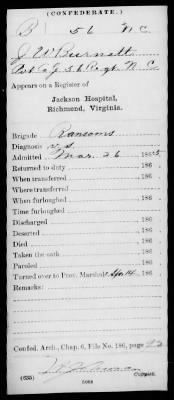 (CONFEDERATE.)
B 56 N C
J W Burnett
Pvt Co G 56 Regt N. C.
Appears on a Register of
Jackson Hospital,
Richmond, Virginia.
Brigade Ransoms
Diagnosis v. s.
Admitted Mar. 26 1865
Returned to duty 186
When transferred 186
Where transferred
When furloughed 186
Time furloughed
Discharged 186
Deserted 186
Died 186
Taken the oath 186
Paroled 186
Turned over to Prov. Marshal Apr 14 186
Remarks:
Confed. Arch., Chap. 6, File No. 186, page 22
(635)
Copyist.